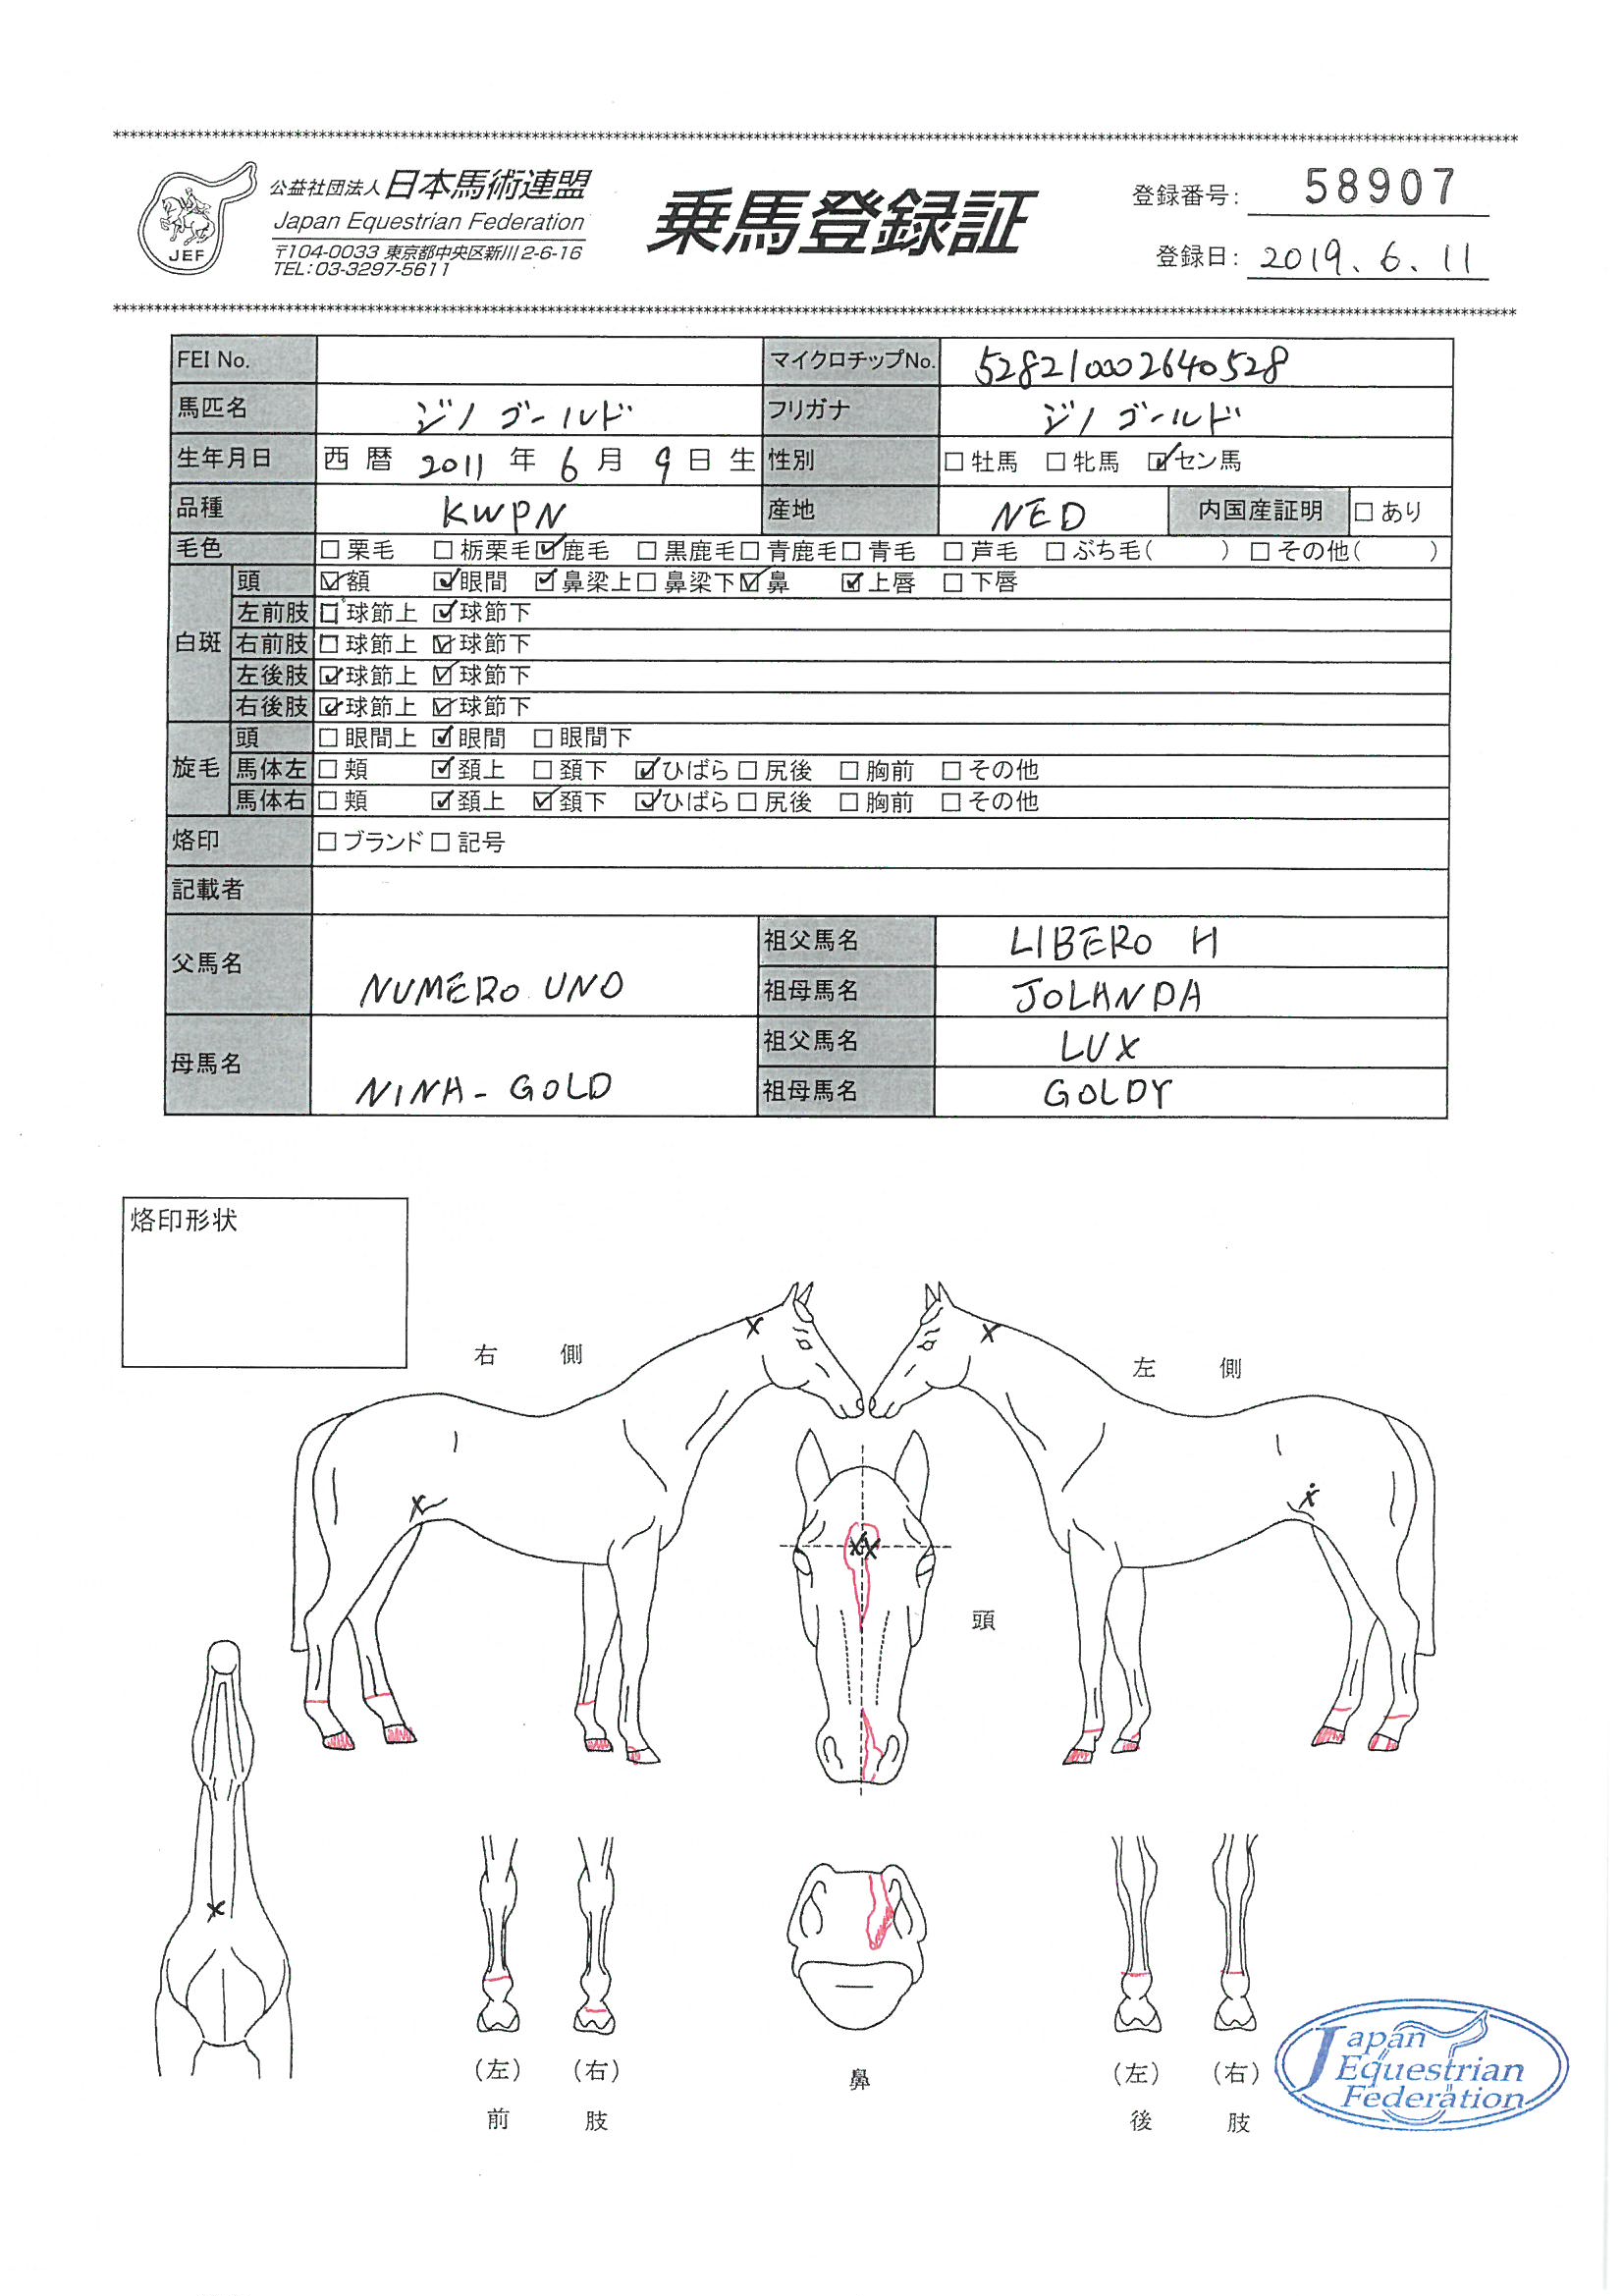 公益社団法人 日本馬術連盟
Japan Equestrian Federation
〒104-0033 東京都中央区新川2-6-16
TEL:03-3297-5611
JEF
乗馬登録証
登録番号: 58907
登録日: 2019.6.11
FEI No. マイクロチップNo. 528210002640528
馬匹名 ジノ ゴールド フリガナ ジノ ゴールド
生年月日 西暦 2011 年 6 月 9 日 生 性別 □ 牡馬 □ 牝馬 ☑ セン馬
品種 KWPN 産地 NED 内国産証明 □ あり
毛色 □ 栗毛 □ 栃栗毛 ☑ 鹿毛 □ 黒鹿毛 □ 青鹿毛 □ 青毛 □ 芦毛 □ ぶち毛( ) □ その他( )
白斑 頭 ☑ 額 ☑ 眼間 ☑ 鼻梁上 □ 鼻梁下 ☑ 鼻 ☑ 上唇 □ 下唇
左前肢 □ 球節上 ☑ 球節下
右前肢 □ 球節上 ☑ 球節下
左後肢 ☑ 球節上 ☑ 球節下
右後肢 ☑ 球節上 ☑ 球節下
旋毛 頭 □ 眼間上 ☑ 眼間 □ 眼間下
馬体左 □ 頬 ☑ 頚上 □ 頚下 ☑ ひばら □ 尻後 □ 胸前 □ その他
馬体右 □ 頬 ☑ 頚上 ☑ 頚下 ☑ ひばら □ 尻後 □ 胸前 □ その他
烙印 □ ブランド □ 記号
記載者
父馬名 NUMERO UNO 祖父馬名 LIBERO H
祖母馬名 JOLANDA
母馬名 NINA-GOLD 祖父馬名 LUX
祖母馬名 GOLDY
烙印形状
右 側
左 側
頭
(左) (右)
前 肢
鼻
(左) (右)
後 肢
Japan
Equestrian
Federation